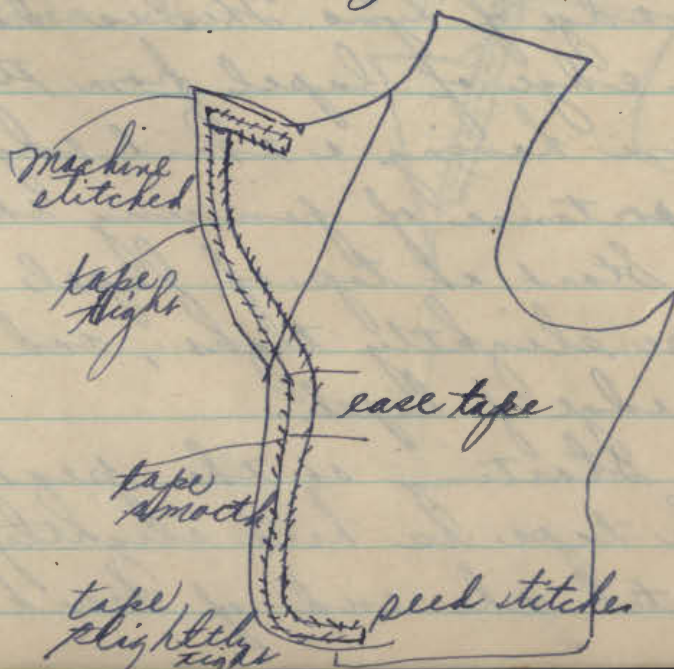 machine
stitched
tape
tight
ease tape
tape
smooth
tape
slightly
tight
seed stitches